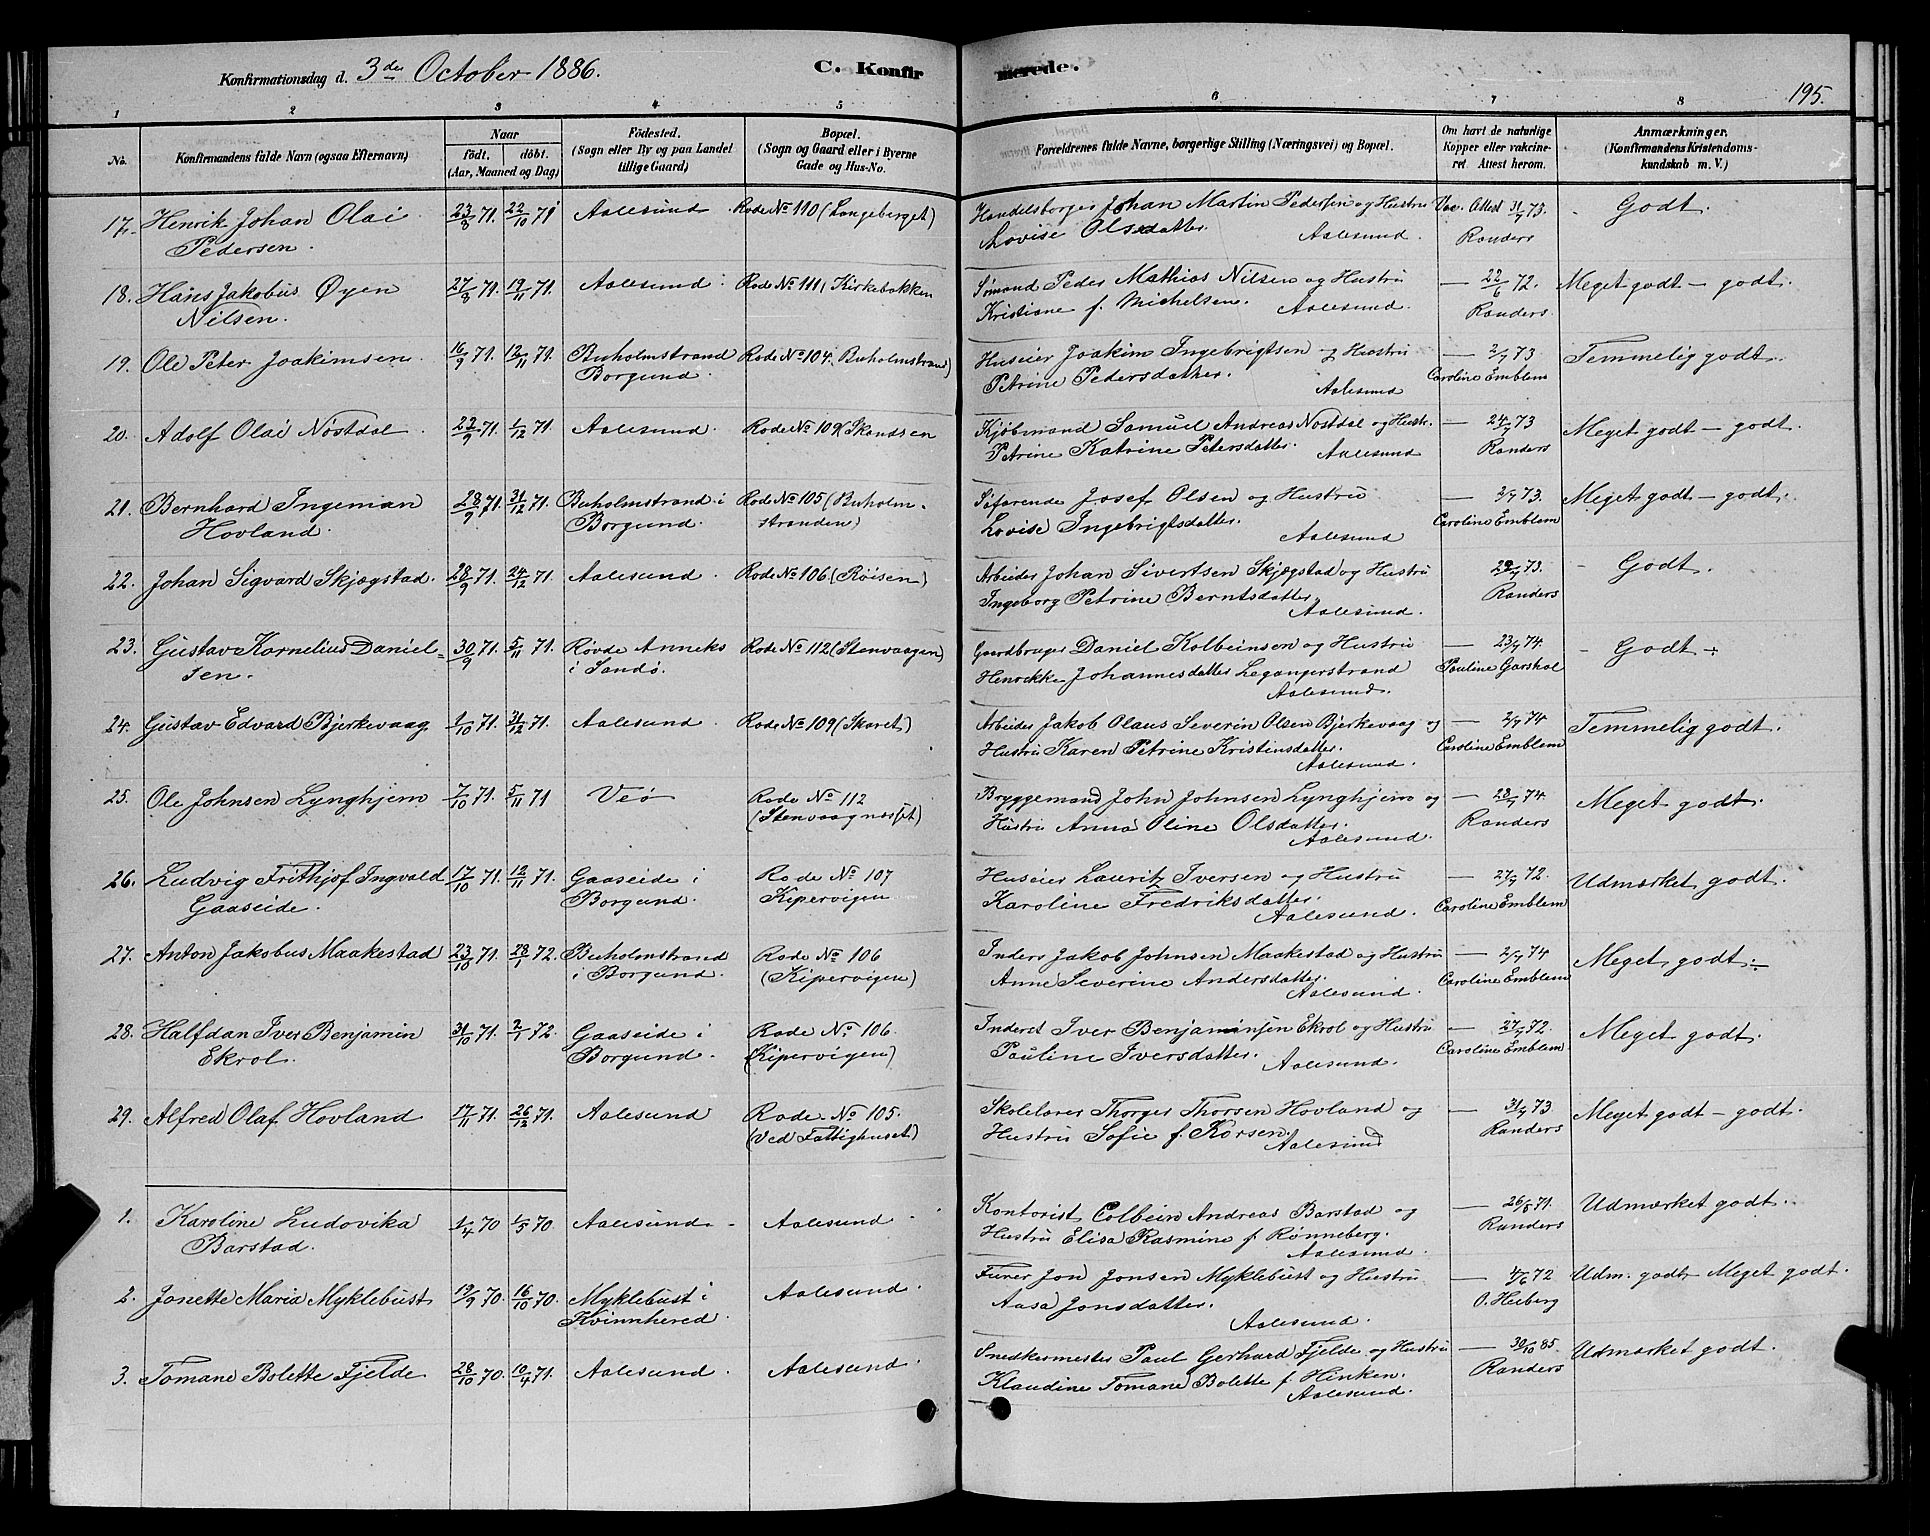 Konfirmationsdag d. 3die October 1886. C. Konfirmerede. 195.
1 2 3 4 5 6 7 8
No. Konfirmandens fulde Navn (ogsaa Efternavn) Naar födt. döbt. (Aar, Maaned og Dag) Födested. (Sogn eller By og paa Landet tillige Gaard) Bopæl. (Sogn og Gaard eller i Byerne Gade og Hus-No. Forældrenes fulde Navne, borgerlige Stilling (Næringsvei) og Bopæl. Om havt de naturlige Kopper eller vakcineret. Attest herom. Anmærkninger. (Konfirmandens Kristendomskundskab m. V.)
17. Henrik Johan Olai 23/8 71. 22/10 71 Aalesund. Rode No 110 (Longeberget) Handelsborger Johan Martin Pedersen og Hustru Vac. Attest 31/7 73. - Godt.
Pedersen. Lovise Olsdatter. Aalesund. Randers
18. Hans Jakobus Øyen 27/8 71. 19/11 71. Aalesund. Rode No 111 (Kirkebakken Sømand Peder Mathias Nilsen og Hustru — 22/6 72. Meget godt - godt.
Nilsen. Kristiane f. Michelsen. Aalesund. Randers.
19. Ole Peter Joakimsen. 16/9 71. 12/11 71. Buholmstrand Rode No 104. Buholmstrand) Huseier Joakim Ingebrigtsen og Hustru — 2/7 73 Temmelig godt.
Borgund. Petrine Pedersdatter. Aalesund Caroline Emblem
20. Adolf Olai Nøstdal 23/9 71. 1/12 71. Aalesund. Rode No 109 (Skandsen Kjøbmand Samuel Andreas Nøstdal og Hustr. — 24/7 73 Meget godt - godt.
Petrine Katrine Petersdatter. Aalesund Randers
21. Bernhard Ingeman 28/9 71. 31/12 71. Buholmstrand i Rode No 105 (Buholm- Søfarende Josef Olsen og Hustru — 2/7 73. Meget godt - godt.
Hovland. Borgund. stranden) Lovise Ingebrigtsdatter. Aalesund Caroline Emblem
22. Johan Sigvard Skjøgstad. 28/9 71. 24/12 71. Aalesund. Rode No 106 (Røisen) Arbeider Johan Sivertsen Skjøgstad og Hustru 29/7 73. - Godt.
Ingeborg Petrine Berntsdatter. Aalesund. Randers
23. Gustav Kornelius Daniel= 30/9 71. 5/11 71. Røvde Anneks Rode No 112 (Stenvaagen) Gaardbruger Daniel Kolbeinsen og Hustru — 23/7 74. - Godt -
sen. i Sandø. Henrikke Johannesdatter Leganger strand Pauline Garshol
Aalesund.
24. Gustav Edvard Bjerkevaag 1/10 71. 31/12 71. Aalesund. Rode No 109 (Skaret) Arbeider Jakob Olaus Severin Olsen Bjerkevaag og — 2/7 74 Temmelig godt.
Hustru Karen Petrine Kristensdatter. Caroline Emblem
Aalesund.
25. Ole Johnsen Lynghjem 7/10 71. 5/11 71 Veø Rode No 112 Bryggemand John Johnsen Lynghjem og — 28/7 74. Meget godt.
(Stenvaagnesset) Hustru Anna Oline Olsdatter. Randers
Aalesund.
26. Ludvig Frithjof Ingvald 17/10 71. 12/11 71. Gaaseide i Rode No 107 Huseier Lauritz Iversen og Hustru — 27/7 72. Udmærket godt.
Gaaseide. Borgund. Kipervigen Karoline Fredriksdatter. Aalesund. Caroline Emblem
27. Anton Jakobus Maakestad 23/10 71. 28/1 72. Buholmstrand Rode No 106 Inders. Jakob Johnsen Maakestad og Hustru — 2/7 74 Meget godt.
i Borgund. (Kipervigen) Anne Severine Andersdatter. Aalesund. Caroline Emblem
28. Halfdan Iver Benjamin 31/10 71. 2/1 72. Gaaseide i Rode No 106. Inderst Iver Benjaminsen Ekrol og Hustru — 27/7 72. Meget godt.
Ekrol. Borgund. (Kipervigen) Pauline Iversdatter. Aalesund. Caroline Emblem
29. Alfred Olaf Hovland 17/11 71. 26/12 71. Aalesund Rode No 105. Skolelærer Thorger Thorsen Hovland og — 31/7 73 Meget godt - godt.
(ved Fattighuset) Hustru Sofie f. Korsen. Aalesund Randers
1. Karoline Ludovika 1/4 70 1/5 70. Aalesund Aalesund Kontorist Colbein Andreas Barstad og — 26/8 71. Udmærket godt.
Barstad. Hustru Elisa Rasmine f. Rønneberg. Randers
Aalesund.
2. Janette Maria Myklebust 19/9 70. 16/10 70. Myklebust i Aalesund. Furer Jon Jonsen Myklebust og Hustru — 4/6 72 Udm. godt, Meget godt.
Kvinnhered. Aasa Jonsdatter. Aalesund. O. Heiberg
3. Tomane Bolette Fjelde 28/10 70. 10/4 71. Aalesund. Aalesund. Snedkermester Paul Gerhard Fjelde og Hustru — 30/10 85. Udmærket godt.
Klaudine Tomane Bolette f. Hinken. Randers
Aalesund.